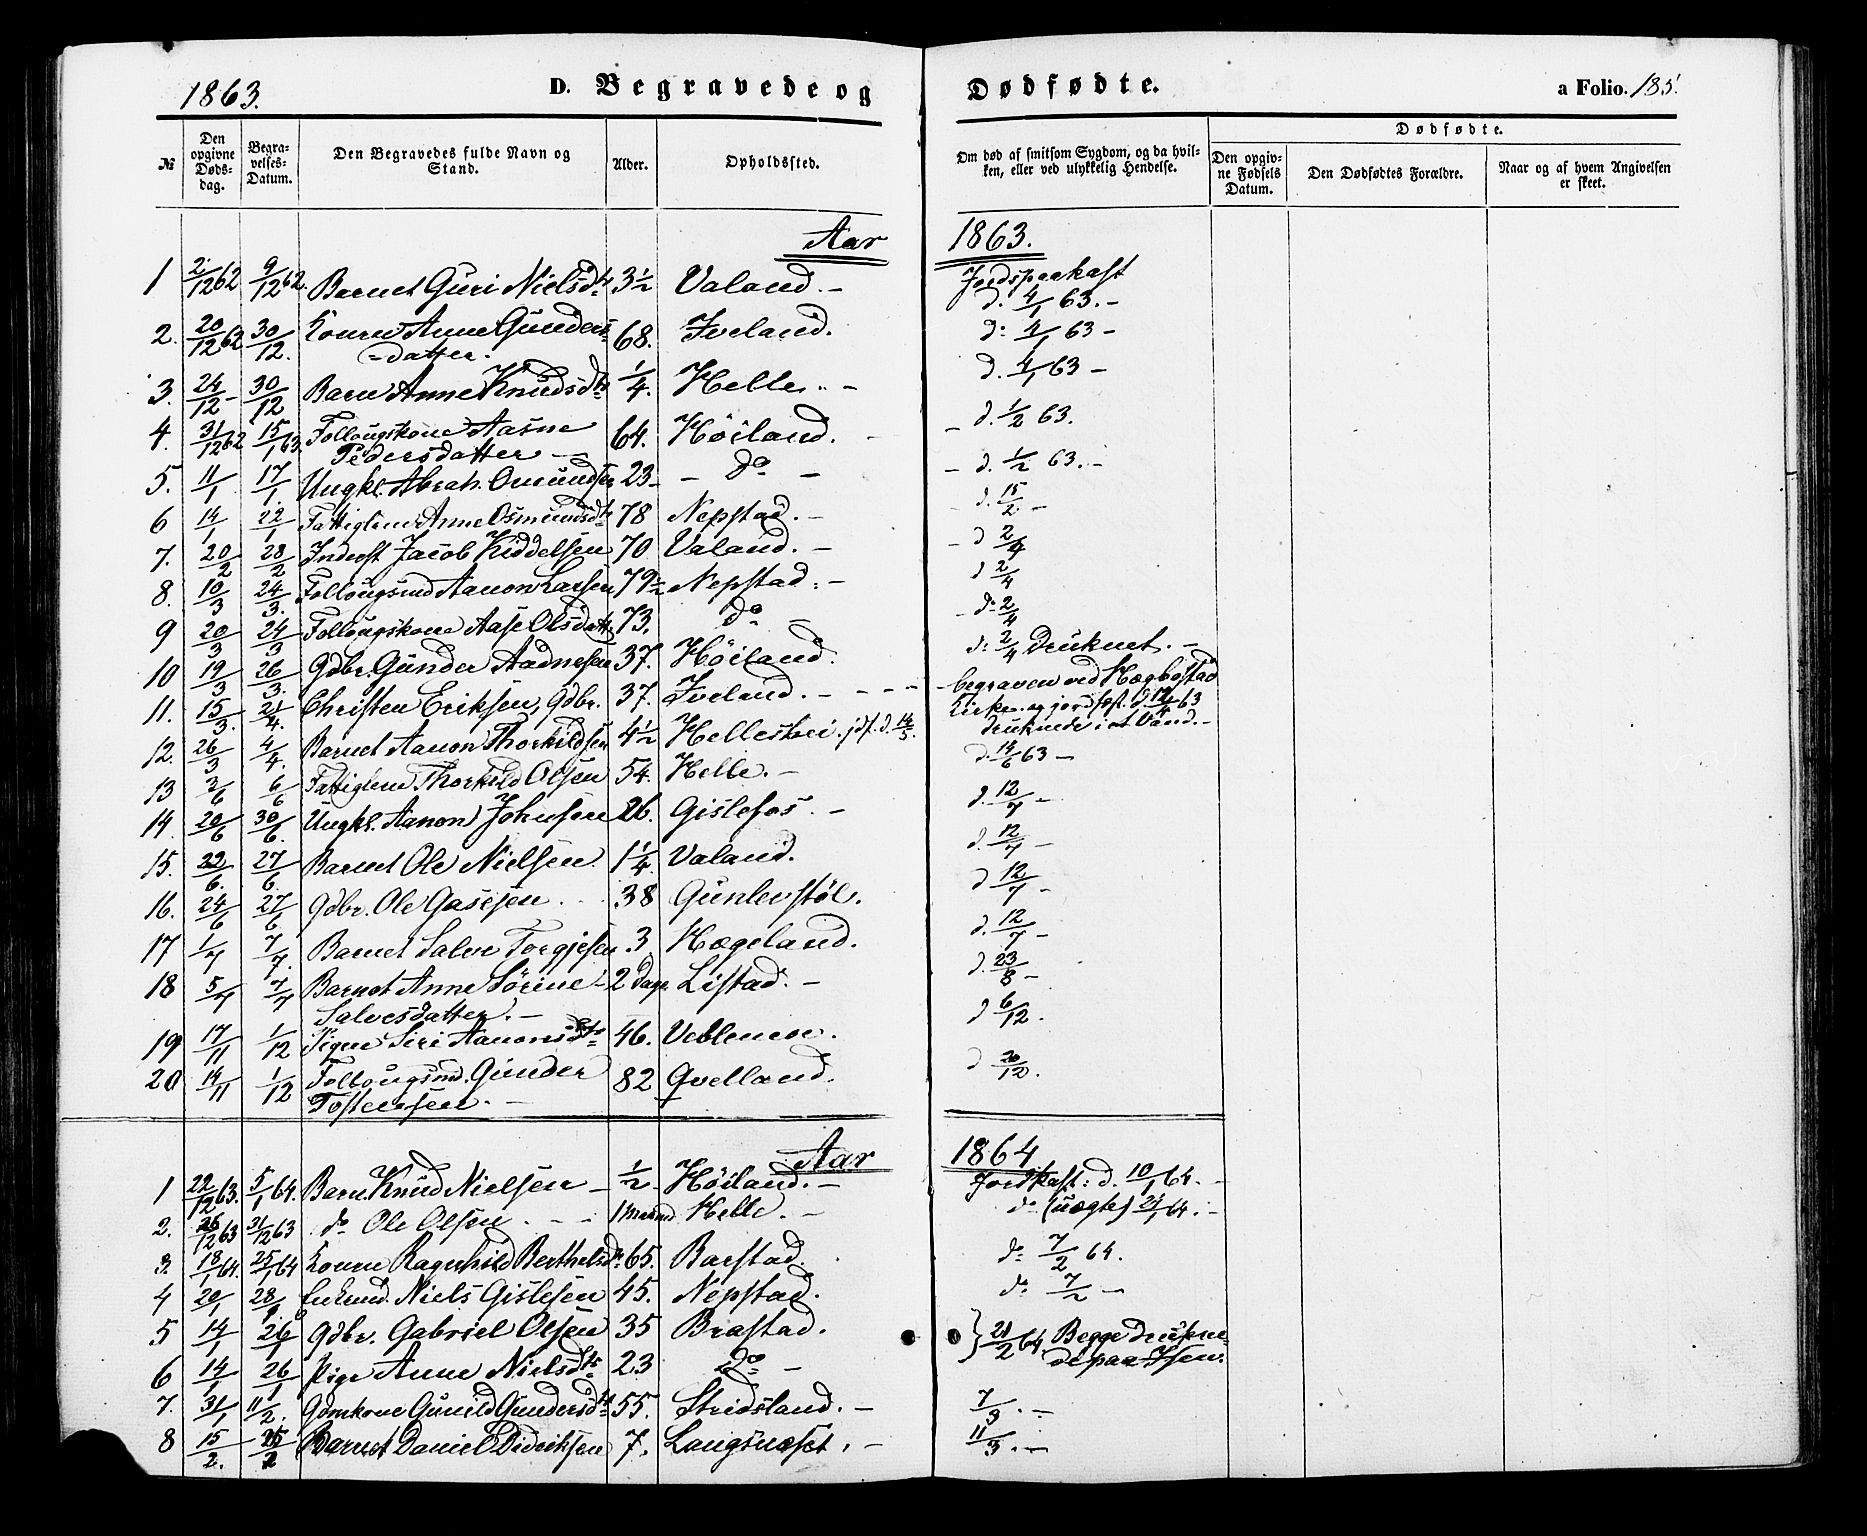 1863.
D. Begravede og Dødfødte.
a Folio. 185.
№
Den opgivne Døds-dag.
Begra-velses-Datum.
Den Begravedes fulde Navn og Stand.
Alder.
Opholdssted.
Om død af smitsom Sygdom, og da hvil-ken, eller ved ulykkelig Hendelse.
Dødfødte.
Den opgiv-ne Fødsels Datum.
Den Dødfødtes Forældre.
Naar og af hvem Angivelsen er skeet.
Aar 1863.
Jordspaakast
1 2/12 62 9/12 62. Barnet Guri Nielsdtr 3½ Valand. – d. 4/1 63. –
2. 20/12 62 30/12. Konen Anne Gunders-datter. 68. Iveland. d: 4/1 63 –
3. 24/12 – 30/12 Barn Anne Knudsdtr ¼. Helle. – d. 4/1 63 –
4. 31/12 62 15/1 63. Follougskone Aasne Pedersdatter – 64. Höiland. – d. 1/2 63.
5. 11/1 17/1. Ungkl. Abrah. Omundsen 23 – do – – d. 1/2 63. –
6 14/1 22/1 Fattiglem Anne Osmundsdtr 78 Nepstad. – d. 15/2 –
7. 20/2 28/2 Inderst Jacob Kiddelsen 70 Valand. – – d 2/4
8. 10/3 24/3. Follougsmd Aanon Larsen 79½ Nepstad. – d 2/4
9 20/3 24/3 Follougskone Aase Olsdatt. 73. do – – d: 2/4
10 19/3 26/3. Gdbr. Gunder Aadnesen 37. Höiland. d: 2/4 druknet. –
11. 15/3. 21/4. Christen Eriksen, Gdbr. 37. Iveland. – – – – begraven ved Hægbostad
Kirke og jordfæst. d 19/4 63
12. 26/3 4/4. Barnet Aanon Thorkildsen 4½ Helleshei. jdf. d. 14/5. druknede i et Vand. –
13 2/6 6/6 Fattiglem Thorkild Olsen 54. Helle. – d. 14/6 63 –
14. 20/6 30/6. Ungkl. Aanon Johnsen 26. Gislefos. – d. 12/7 –
15. 22/6. 27/6. Barnet Ole Nielsen. 1¼. Valand. d. 12/7 –
16. 24/6 27/6 Gdbr. Ole Gasesen. 38 Gunlevstöl. d 12/7 –
17 1/7 7/7. Barnet Salve Torgjesen 3 Hægeland. d. 12/7 –
18 5/7 7/7 Barnet Anne Sörine Salvesdatter. – 2 Dage Listad. – d. 23/8 –
19 17/11 1/12 Pigen Siri Aanonsdtr 46. Veblemoe. d 6/12.
20 14/11 1/12 Follougsmd. Gunder Tostensen. – 82 Qvelland. d 20/12.
Aar 1864
1 22/12 63. 5/1 64. Barn Knud Nielsen – ½. Höiland. – Jordkast: d. 10/1 64. –
2. 26/12 63 31/12 63 do Ole Olsen. – – 1 Maaned Helle. – do (uægte) 24/1 64. –
3. 18/1 64. 25/1 64 Konen Ragnhild Berthelsd. 65. Barstad. d: 7/2 64.
4 20/1 28/1 Enkemd. Niels Gislesen 45. Nepstad. d: 7/2 –
5 14/1 26/1 Gdbr. Gabriel Olsen 35 Brastad. } 21/2 64. Begge drukne-
6 14/1 26/1 Pige Anne Nielsdtr 23 Do – de paa Isen.
7. 31/1 11/2. Gdmkone Gunild Gundersdtr 55. Stridsland. – 7/3. –
8 15/2. 25/2 Barnet Daniel Didriksen 7. Langsnæset. – 11/3. –